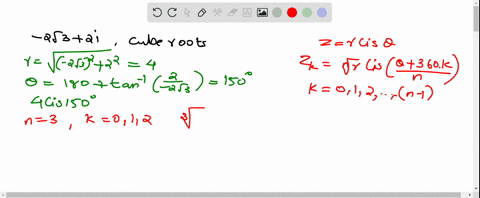 -2√3+2i, cube roots
r = √((-2√3)²+2²) = 4
θ = 180+tan⁻¹(2/-2√3) = 150°
4Cis150°
n=3, k=0,1,2 ∛
z=rcisθ
Zₖ = √r cis(θ+360.k/n)
k=0,1,2,...,(n-1)